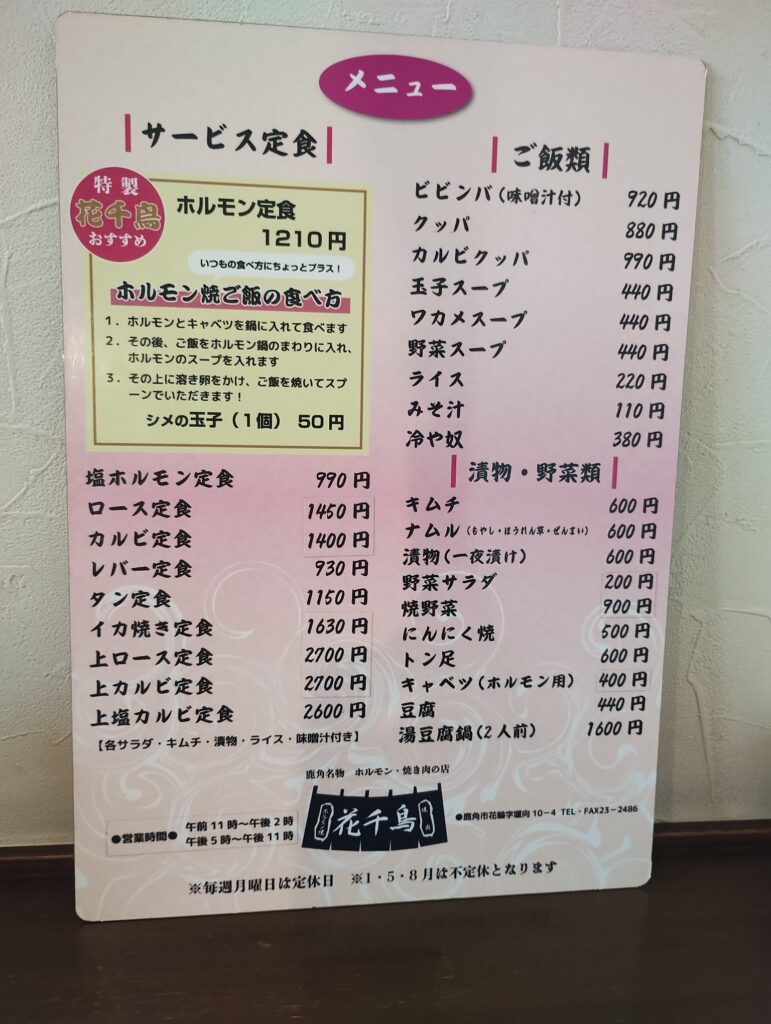 メニュー
サービス定食
特製
花千鳥
おすすめ
ホルモン定食
1210円
いつもの食べ方にちょっとプラス！
ホルモン焼ご飯の食べ方
1．ホルモンとキャベツを鍋に入れて食べます
2．その後、ご飯をホルモン鍋のまわりに入れ、
ホルモンのスープを入れます
3．その上に溶き卵をかけ、ご飯を焼いてスプ
ーンでいただきます！
シメの玉子（1個） 50円
塩ホルモン定食 990円
ロース定食 1450円
カルビ定食 1400円
レバー定食 930円
タン定食 1150円
イカ焼き定食 1630円
上ロース定食 2700円
上カルビ定食 2700円
上塩カルビ定食 2600円
【各サラダ・キムチ・漬物・ライス・味噌汁付き】
ご飯類
ビビンバ（味噌汁付） 920円
クッパ 880円
カルビクッパ 990円
玉子スープ 440円
ワカメスープ 440円
野菜スープ 440円
ライス 220円
みそ汁 110円
冷や奴 380円
漬物・野菜類
キムチ 600円
ナムル（もやし・ほうれん草・ぜんまい） 600円
漬物（一夜漬け） 600円
野菜サラダ 200円
焼野菜 900円
にんにく焼 500円
トン足 600円
キャベツ（ホルモン用） 400円
豆腐 440円
湯豆腐鍋（2人前） 1600円
鹿角名物 ホルモン・焼き肉の店
花千鳥
●営業時間● 午前11時〜午後2時
午後5時〜午後11時
●鹿角市花輪字堰向10−4 TEL・FAX23−2486
※毎週月曜日は定休日 ※1・5・8月は不定休となります